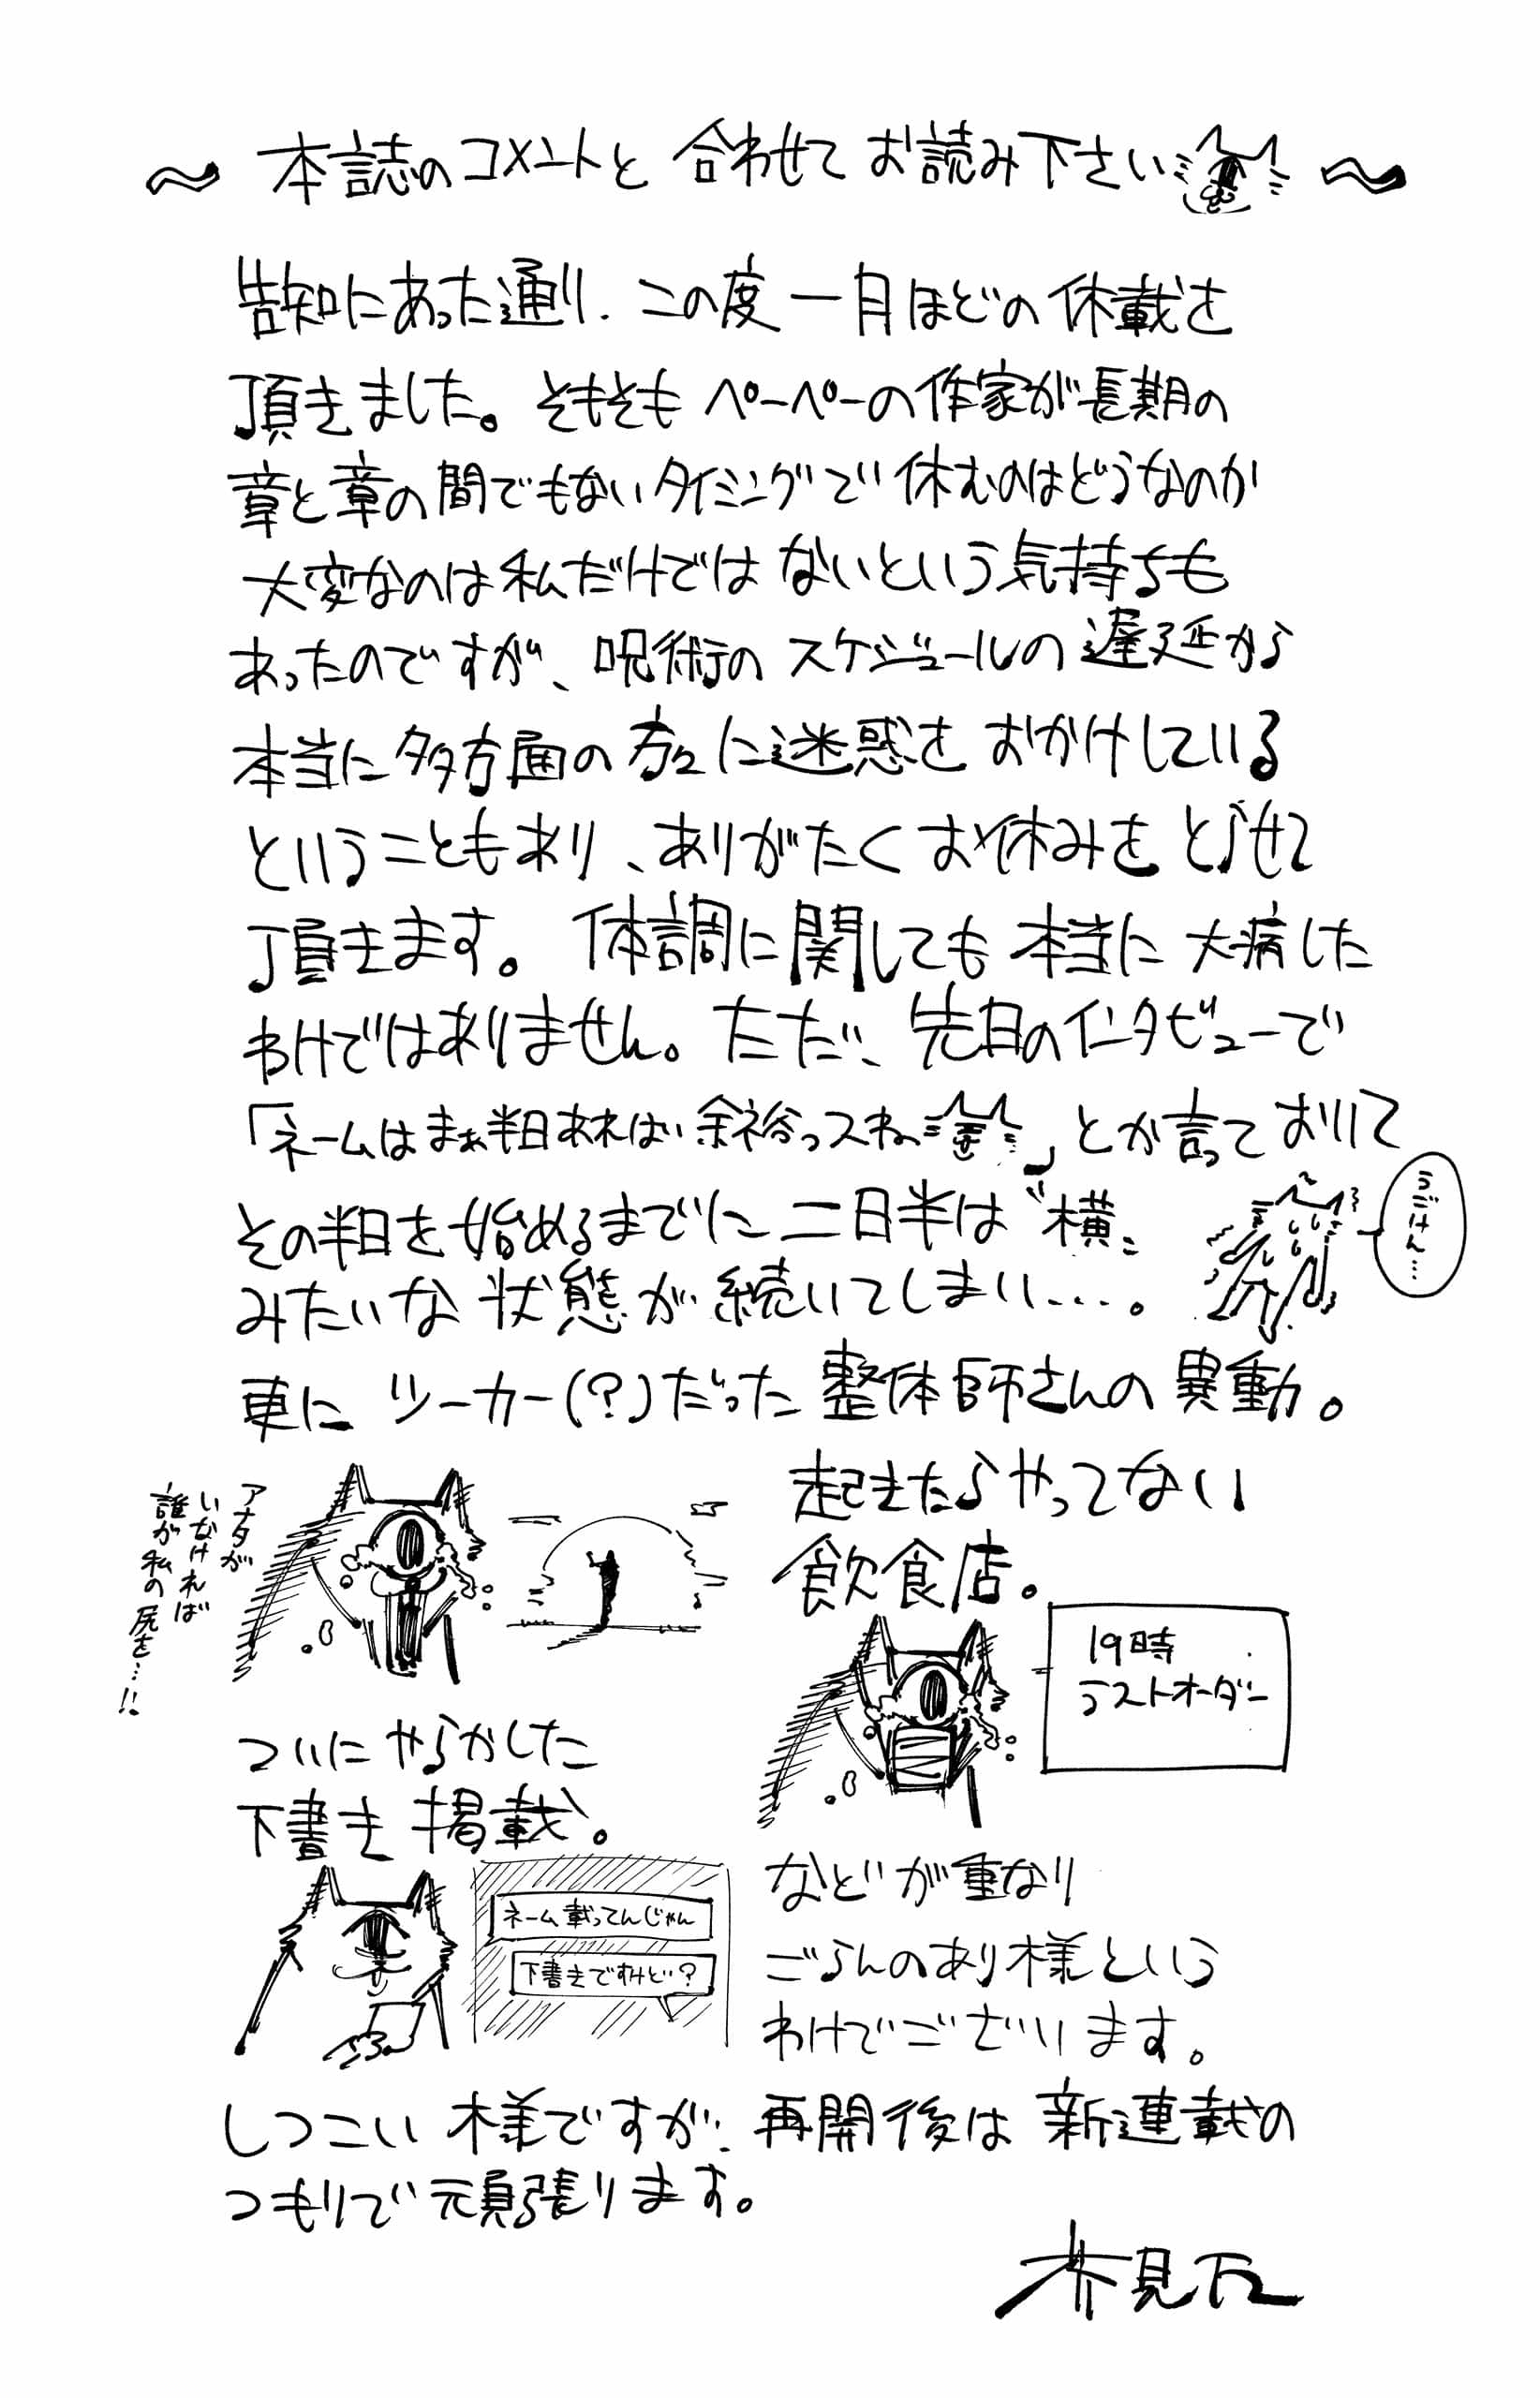 ～ 本誌のコメントと 合わせて お読み下さい ～
告知にあった通り、この度 一月ほどの 休載を
頂きました。そもそも ペーペーの作家が長期の
章と章の間でもないタイミングで 休むのはどうなのか
大変なのは私だけでは ないという気持ちも
あったのですが、呪術の スケジュールの 遅延から
本当に 多方面の 方々に迷惑を おかけしている
ということもあり、ありがたく お休みを とらせて
頂きます。体調に関しても 本当に 大病した
わけではありません。ただ、先日のインタビューで
「ネームはまぁ半日あれば 余裕っスね」とか言って おりまして
その半日を始めるまでに 二日半は〝横〟
うごけん…
みたいな 状態が 続いてしまい…。
更に ツーカー(?)だった 整体師さんの 異動。
アナタが
いなければ
誰が私の尻を…!!
起きたらやってない
飲食店。
19時
ラストオーダー
ついに やらかした
下書き 掲載。
ネーム載ってんじゃん
下書きですけど?
などが重なり
ごらんのあり様という
わけでございます。
しつこい 様ですが、再開後は 新連載の
つもりで頑張ります。
芥見下々